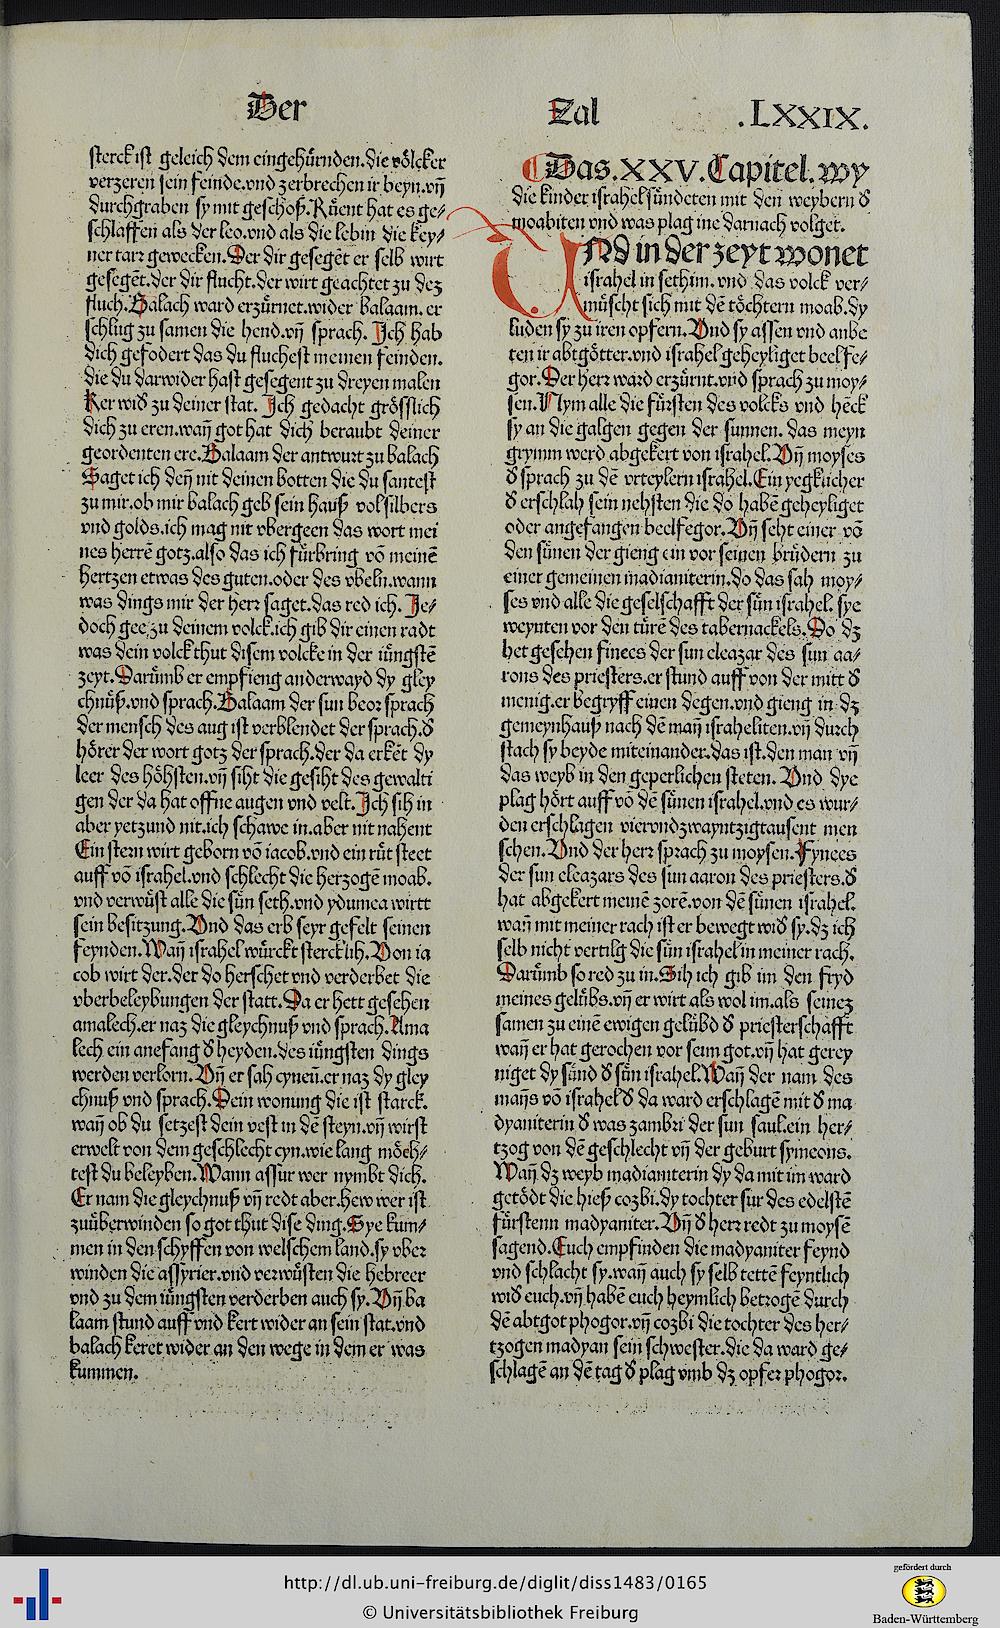 Der
Zal
.LXXIX.
sterck ist geleich dem eingehúrnden.die vőlcker
verzeren sein feinde.vnd zerbrechen ir beyn.vn̄
durchgraben sy mit geschoß.Rúent hat es ge⸗
schlaffen als der leo.vnd als die lebin die key⸗
ner tarz gewecken.Der dir gesegēt er selb wirt
gesegēt.der dir flucht.der wirt geachtet zu dez
fluch.Balach ward erzúrnet.wider balaam.er
schlug zu samen die hend.vn̄ sprach. Ich hab
dich gefodert das du fluchest meinen feinden.
die du darwider hast gesegent zu dreyen malen
Ker wid zu deiner stat. Ich gedacht grősslich
dich zu eren.wan̄ got hat dich beraubt deiner
geordenten ere.Balaam der antwurt zu balach
Saget ich den̄ nit deinen botten die du santest
zu mir.ob mir balach geb sein hauß vol silbers
vnd golds.ich mag nit vbergeen das wort mei
nes herrē gotz.also das ich fúrbring vō meinē
hertzen etwas des guten.oder des vbeln.wann
was dings mir der herr saget.das red ich. Je⸗
doch gee zu deinem volck.ich gib dir einen radt
was dein volck thut disem volcke in der iúngstē
zeyt.Darúmb er empfieng anderwayd dy gley
chnúß.vnd sprach.Balaam der sun beor sprach
der mensch des aug ist verblendet der sprach.d
hőrer der wort gotz der sprach.der da erkēt dy
leer des hőhsten.vn̄ siht die gesiht des gewalti
gen der da hat offne augen vnd velt. Ich sih in
aber yetzund nit.ich schawe in.aber nit nahent
Ein stern wirt geborn vō iacob.vnd ein rút steet
auff vō israhel.vnd schlecht die herzogē moab.
vnd verwúst alle die sún seth.vnd ydumea wirtt
sein besitzung.Vnd das erb seyr gefelt seinen
feynden.Wan̄ israhel wúrckt stercklih.Von ia
cob wirt der.der do herschet vnd verderbet die
vberbeleybungen der statt.Da er hett gesehen
amalech.er naz die gleychnuß vnd sprach.Ama
lech ein anefang d heyden.des iúngsten dings
werden verlorn.Vn̄ er sah cyneū.er naz dy gley
chnuß vnd sprach.Dein wonung die ist starck.
wan̄ ob du setzest dein vest in dē steyn.vn̄ wirst
erwelt von dem geschlecht cyn.wie lang mőch⸗
test du beleyben.Wann assur wer nymbt dich.
Er nam die gleychnuß vn̄ redt aber.hew wer ist
zuúberwinden so got thut dise ding.Sye kum⸗
men in den schyffen von welschem land.sy vber
winden die assyrier.vnd verwústen die hebreer
vnd zu dem iúngsten verderben auch sy.Vn̄ ba
laam stund auff vnd kert wider an sein stat.vnd
balach keret wider an den wege in dem er was
kummen.
Das.XXV.Capitel.wy
die kinder israhel súndeten mit den weybern d
moabiten vnd was plag ine darnach volget.
VNd in der zeyt wonet
israhel in sethim.vnd das volck ver⸗
múscht sich mit dē tőchtern moab.dy
luden sy zu iren opfern.Vnd sy assen vnd anbe
ten ir abtgőtter.vnd israhel geheyliget beelfe⸗
gor.Der herr ward erzúrnt.vnd sprach zu moy⸗
sen.Nym alle die fúrsten des volcks vnd hēck
sy an die galgen gegen der sunnen. das meyn
grymm werd abgekert von israhel.Vn̄ moyses
d sprach zu dē vrteylern israhel.Ein yegklicher
d erschlah sein nehsten die do habē geheyliget
oder angefangen beelfegor.Vn̄ seht einer vō
den súnen der gieng ein vor seinen brúdern zu
einer gemeinen madianiterin.do das sah moy⸗
ses vnd alle die geselschafft der sún israhel. sye
weynten vor den túrē des tabernackels.Do dz
het gesehen finees der sun eleazar des sun aa⸗
rons des priesters.er stund auff von der mitt d
menig.er begryff einen degen.vnd gieng in dz
gemeynhauß nach dē man̄ israheliten.vn̄ durch
stach sy beyde miteinander.das ist.den man vn̄
das weyb in den geperlichen steten. Vnd dye
plag hőrt auff vō dē súnen israhel.vnd es wur⸗
den erschlagen vierondzwayntzigtausent men
schen.Vnd der herr sprach zu moysen.Fynees
der sun eleazars des sun aaron des priesters.d
hat abgekert meinē zorē.von dē súnen israhel.
wan̄ mit meiner rach ist er bewegt wid sy.dz ich
selb nicht vertilg die sún israhel in meiner rach.
Darúmb so red zu in.Sih ich gib im den fryd
meines gelúbs.vn̄ er wirt als wol im.als seinez
samen zu einē ewigen gelúbd d priesterschafft
wan̄ er hat gerochen vor seim got.vn̄ hat gerey
niget dy súnd d sún israhel.Wan̄ der nam des
man̄s vō israhel d da ward erschlagē mit d ma
dyaniterin d was zambri der sun saul.ein her⸗
tzog von dē geschlecht vn̄ der geburt symeons.
Wan̄ dz weyb madianiterin dy da mit im ward
getődt die hieß cozbi.dy tochter sur des edelstē
fúrstenn madyaniter.Vn̄ d herr redt zu moysē
sagend.Euch empfinden die madyaniter feynd
vnd schlacht sy.wan̄ auch sy selb tettē feyntlich
wid euch.vn̄ habē euch heymlich betrogē durch
dē abtgot phogor.vn̄ cozbi die tochter des her⸗
tzogen madyan sein schwester.die da ward ge⸗
schlagē an dē tag d plag vmb dz opfer phogor.
http://dl.ub.uni-freiburg.de/diglit/diss1483/0165
© Universitätsbibliothek Freiburg
gefördert durch
Baden-Württemberg